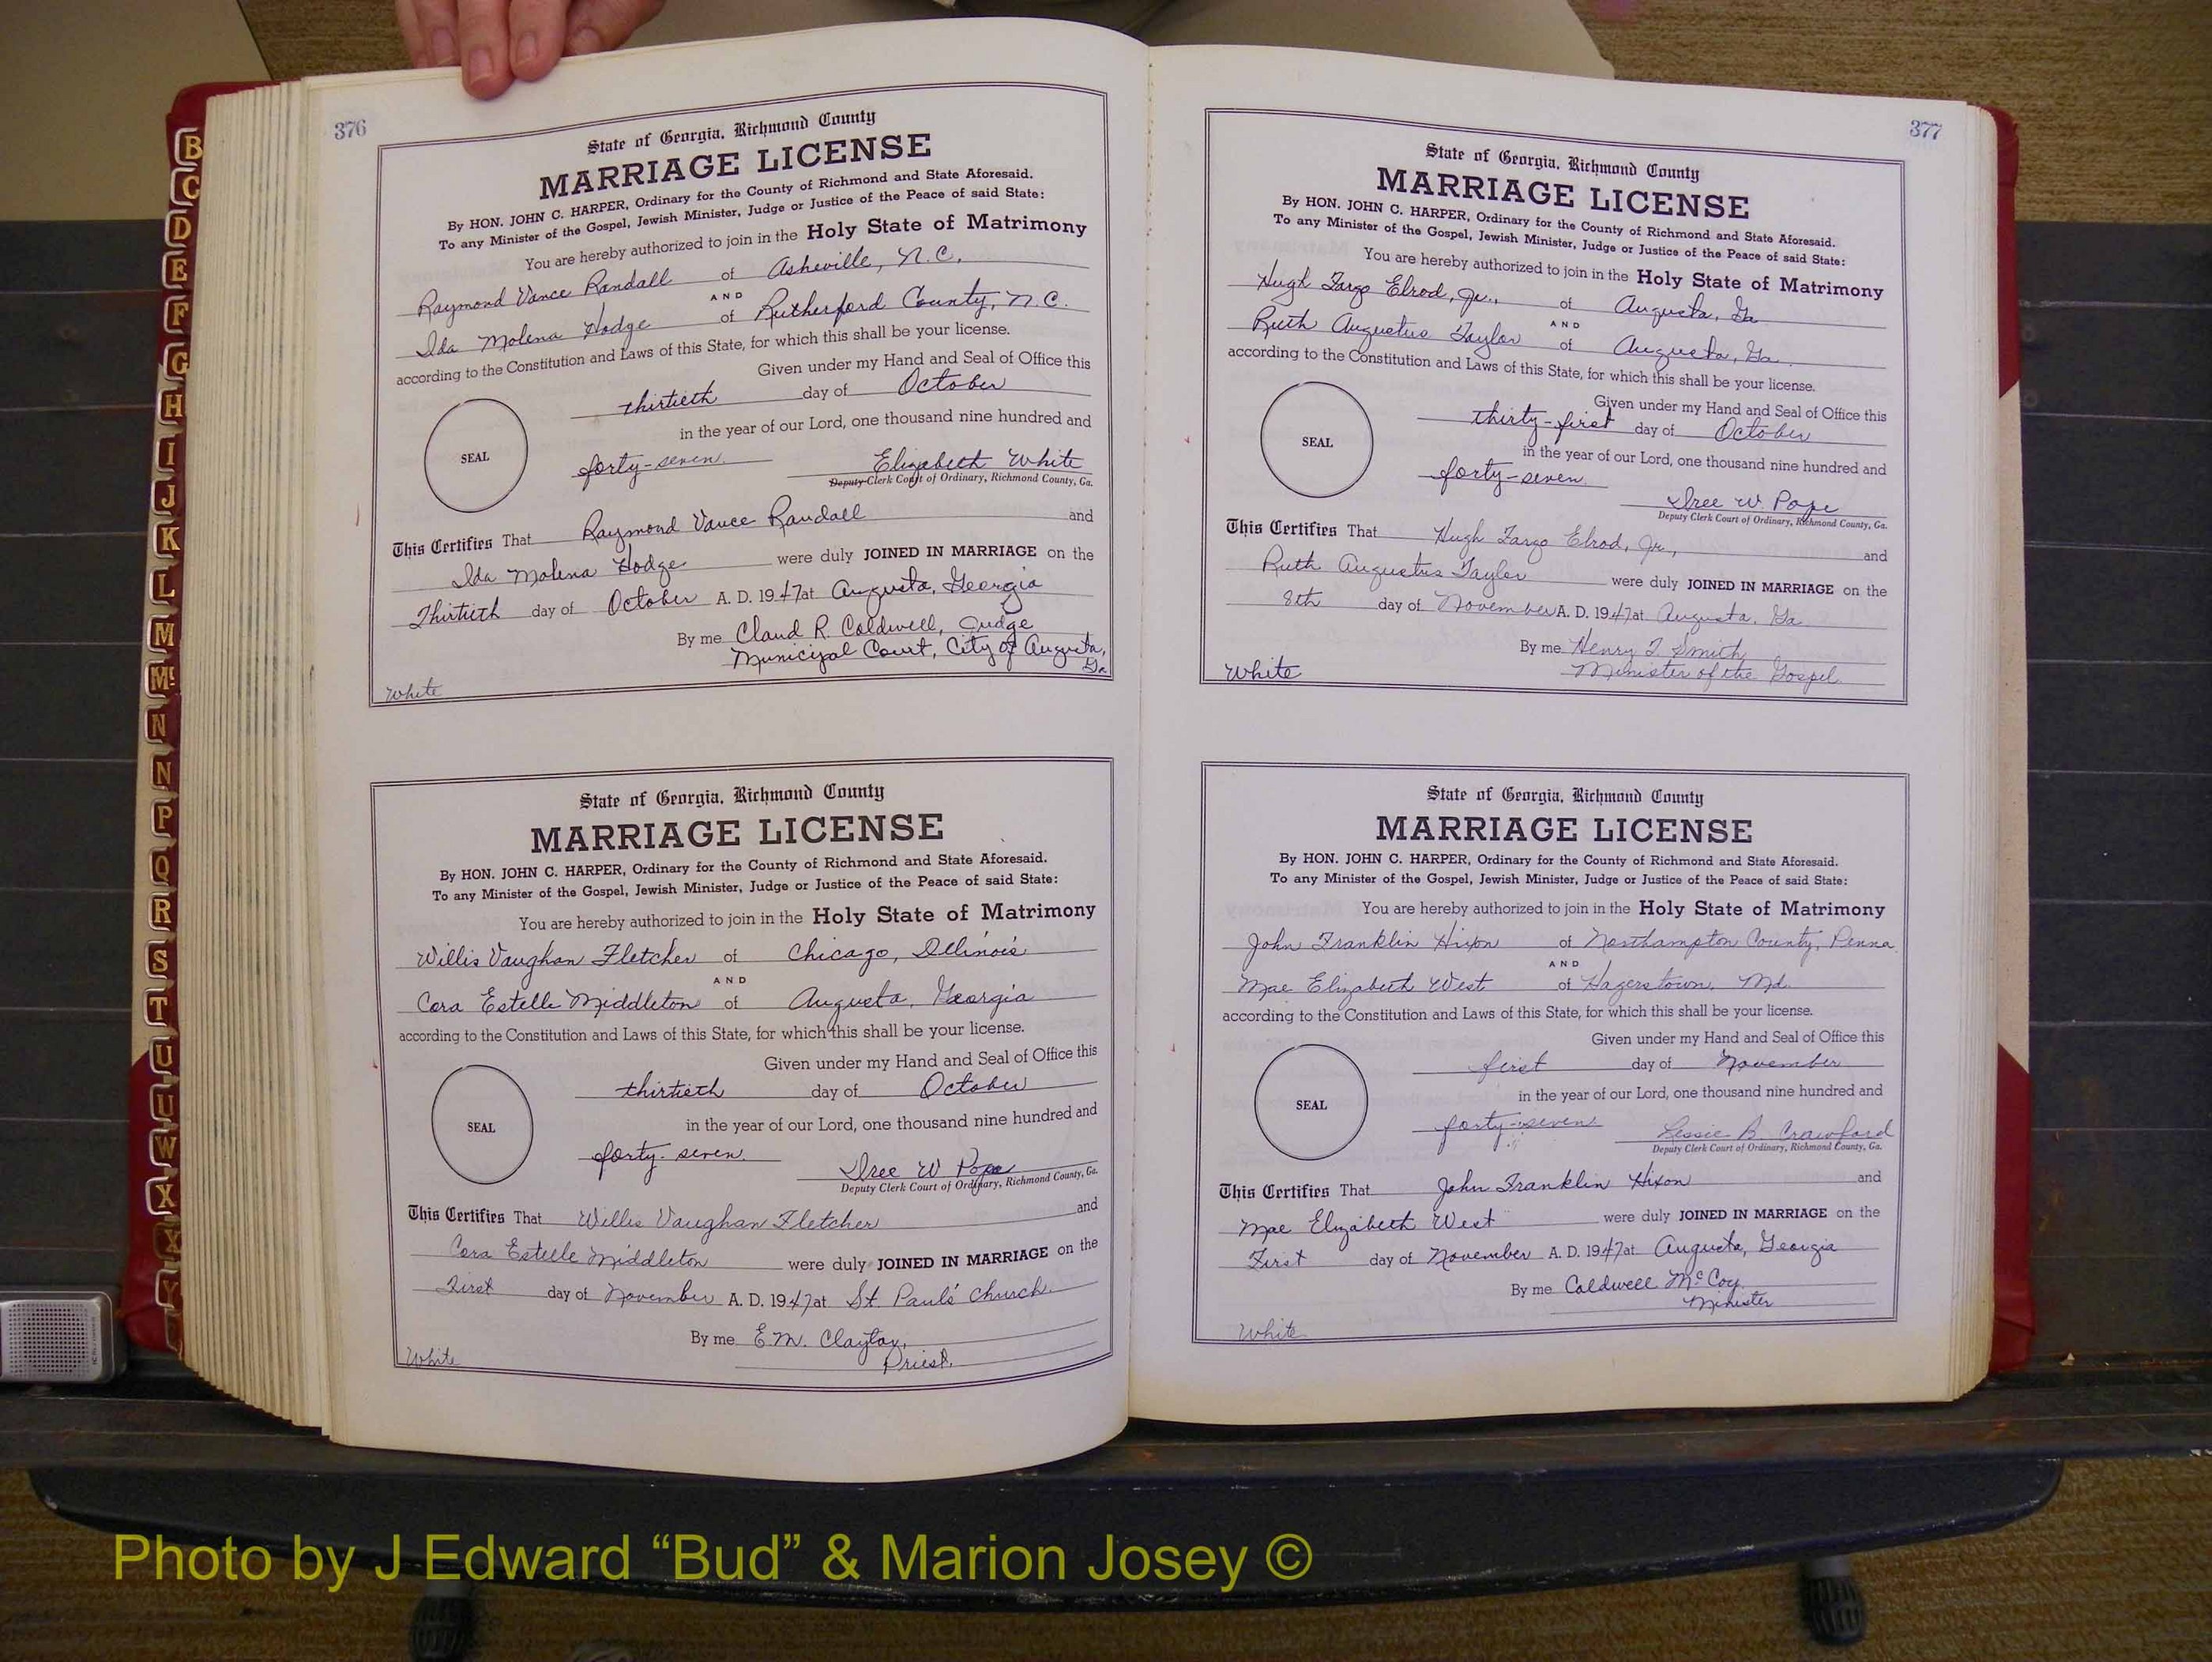 376
State of Georgia, Richmond County
MARRIAGE LICENSE
By HON. JOHN C. HARPER, Ordinary for the County of Richmond and State Aforesaid.
To any Minister of the Gospel, Jewish Minister, Judge or Justice of the Peace of said State:
You are hereby authorized to join in the Holy State of Matrimony
Raymond Vance Randall of Asheville, N.C.
AND
Ida Molena Hodge of Rutherford County, N.C.
according to the Constitution and Laws of this State, for which this shall be your license.
Given under my Hand and Seal of Office this
thirtieth day of October
in the year of our Lord, one thousand nine hundred and
SEAL
forty-seven. Elizabeth White
Deputy Clerk Court of Ordinary, Richmond County, Ga.
This Certifies That Raymond Vance Randall and
Ida Molena Hodge were duly JOINED IN MARRIAGE on the
Thirtieth day of October A. D. 1947 at Augusta, Georgia
By me Claud R. Caldwell, Judge
Municipal Court, City of Augusta,
Ga
White
State of Georgia, Richmond County
MARRIAGE LICENSE
By HON. JOHN C. HARPER, Ordinary for the County of Richmond and State Aforesaid.
To any Minister of the Gospel, Jewish Minister, Judge or Justice of the Peace of said State:
You are hereby authorized to join in the Holy State of Matrimony
Willis Vaughan Fletcher of Chicago, Illinois
AND
Cora Estelle Middleton of Augusta, Georgia
according to the Constitution and Laws of this State, for which this shall be your license.
Given under my Hand and Seal of Office this
thirtieth day of October
in the year of our Lord, one thousand nine hundred and
SEAL
forty-seven. Iree W Pope
Deputy Clerk Court of Ordinary, Richmond County, Ga.
This Certifies That Willis Vaughan Fletcher and
Cora Estelle Middleton were duly JOINED IN MARRIAGE on the
First day of November A. D. 1947 at St. Paul's Church.
By me E.M. Claytor,
Priest.
White
377
State of Georgia, Richmond County
MARRIAGE LICENSE
By HON. JOHN C. HARPER, Ordinary for the County of Richmond and State Aforesaid.
To any Minister of the Gospel, Jewish Minister, Judge or Justice of the Peace of said State:
You are hereby authorized to join in the Holy State of Matrimony
Hugh Fargo Elrod, Jr., of Augusta, Ga
AND
Ruth Augustus Taylor of Augusta, Ga.
according to the Constitution and Laws of this State, for which this shall be your license.
Given under my Hand and Seal of Office this
thirty-first day of October
in the year of our Lord, one thousand nine hundred and
SEAL
forty-seven. Iree W. Pope
Deputy Clerk Court of Ordinary, Richmond County, Ga.
This Certifies That Hugh Fargo Elrod, Jr., and
Ruth Augustus Taylor were duly JOINED IN MARRIAGE on the
8th day of November A. D. 1947 at Augusta, Ga.
By me Henry J. Smith
Minister of the Gospel
White
State of Georgia, Richmond County
MARRIAGE LICENSE
By HON. JOHN C. HARPER, Ordinary for the County of Richmond and State Aforesaid.
To any Minister of the Gospel, Jewish Minister, Judge or Justice of the Peace of said State:
You are hereby authorized to join in the Holy State of Matrimony
John Franklin Hixon of Northampton County, Penna
AND
Mae Elizabeth West of Hagerstown, Md.
according to the Constitution and Laws of this State, for which this shall be your license.
Given under my Hand and Seal of Office this
first day of November
in the year of our Lord, one thousand nine hundred and
SEAL
forty-seven Lessie B. Crawford
Deputy Clerk Court of Ordinary, Richmond County, Ga.
This Certifies That John Franklin Hixon and
Mae Elizabeth West were duly JOINED IN MARRIAGE on the
First day of November A. D. 1947 at Augusta, Georgia
By me Caldwell McCoy
Minister
White
B
C
D
E
F
G
H
I
J
K
L
M
Mc
N
N
P
Q
R
S
T
U
U
W
X
X
Y
Photo by J Edward “Bud” & Marion Josey ©